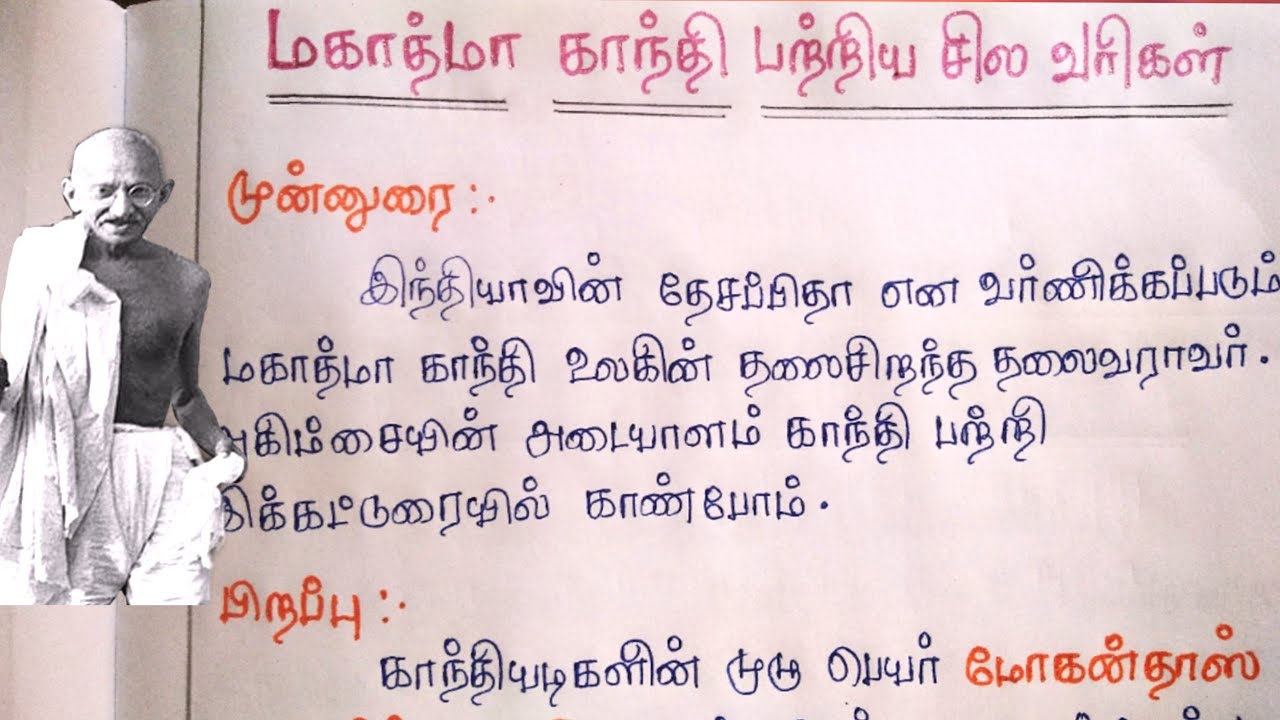 மகாத்மா காந்தி பற்றிய சில வரிகள்
முன்னுரை :-
இந்தியாவின் தேசப்பிதா என வர்ணிக்கப்படும்
மகாத்மா காந்தி உலகின் தலைசிறந்த தலைவராவர்.
அகிம்சையின் அடையாளம் காந்தி பற்றி
இக்கட்டுரையில் காண்போம்.
பிறப்பு :-
காந்தியடிகளின் முழு பெயர் மோகன்தாஸ்